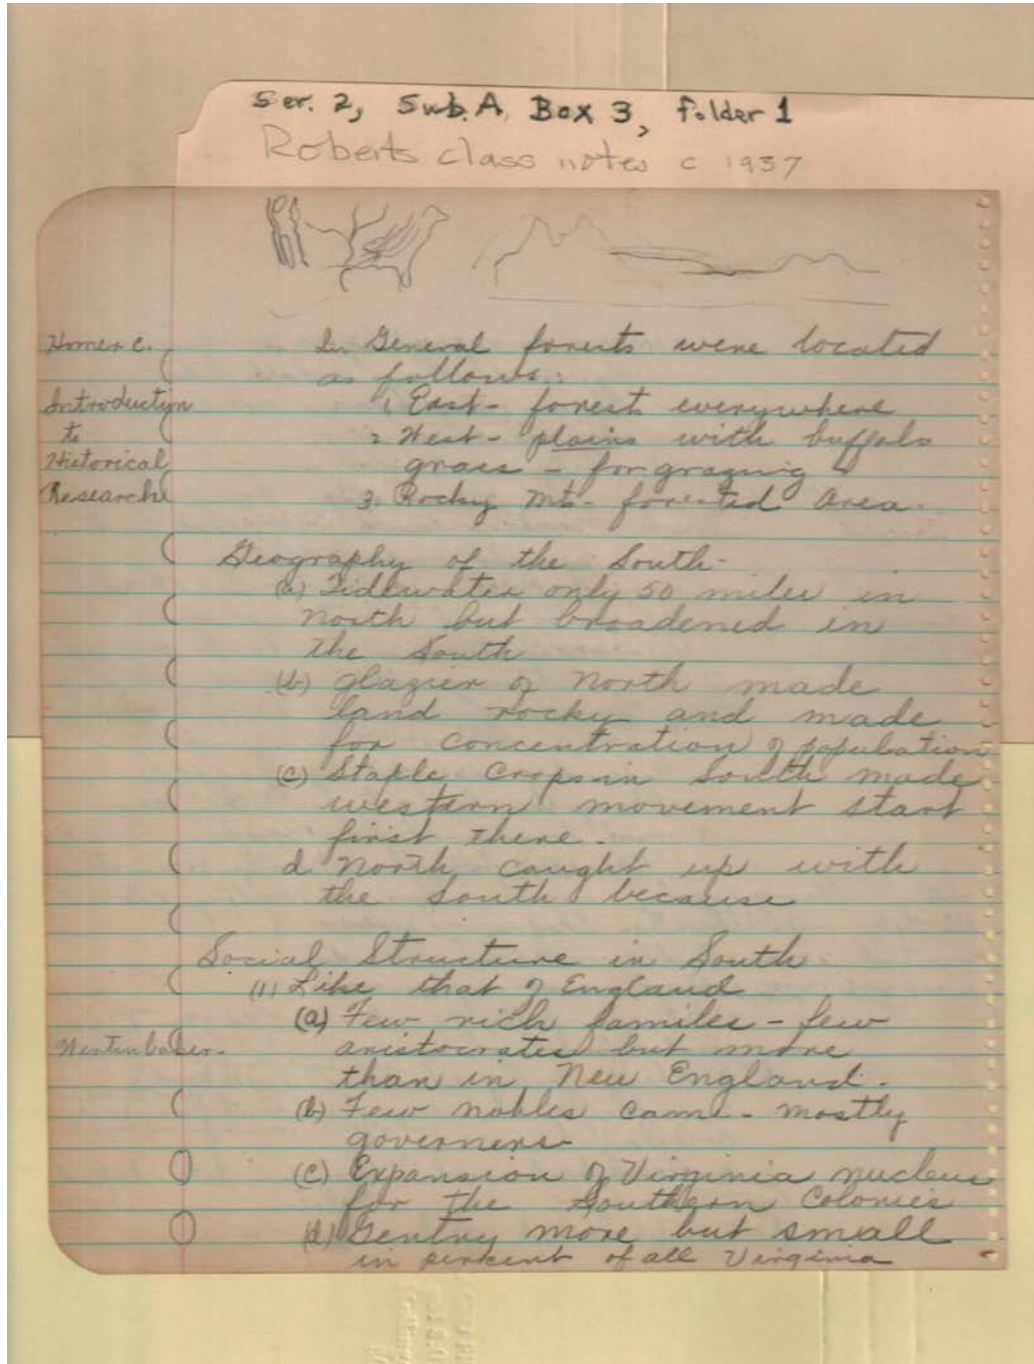 Ser. 2, Sub. A, Box 3, folder 1
Roberts class notes c 1937
Homer C.
Introductyn
to
Historical
Research
b. General forests were located
as follows:
1. East - forest everywhere
2 West - plains with buffalo
grass - for grazing
3. Rocky Mts - forested Area.
Geography of the South-
(a) Tidewater only 50 miles in
North but broadened in
the South
(b) glazier of North made
land rocky and made
for concentration of population
(c) Staple Crops in South made
western movement start
first there.
d North caught up with
the South because
Social Structure in South
(1) Like that of England
(a) Few rich familes - few
Wertenbaker-
aristocrates but more
than in New England.
(b) Few nobles came - mostly
governers-
(c) Expansion of Virginia nucleus
for the Southern Colonies
(d) Gentry more but small
in percent of all Virginia